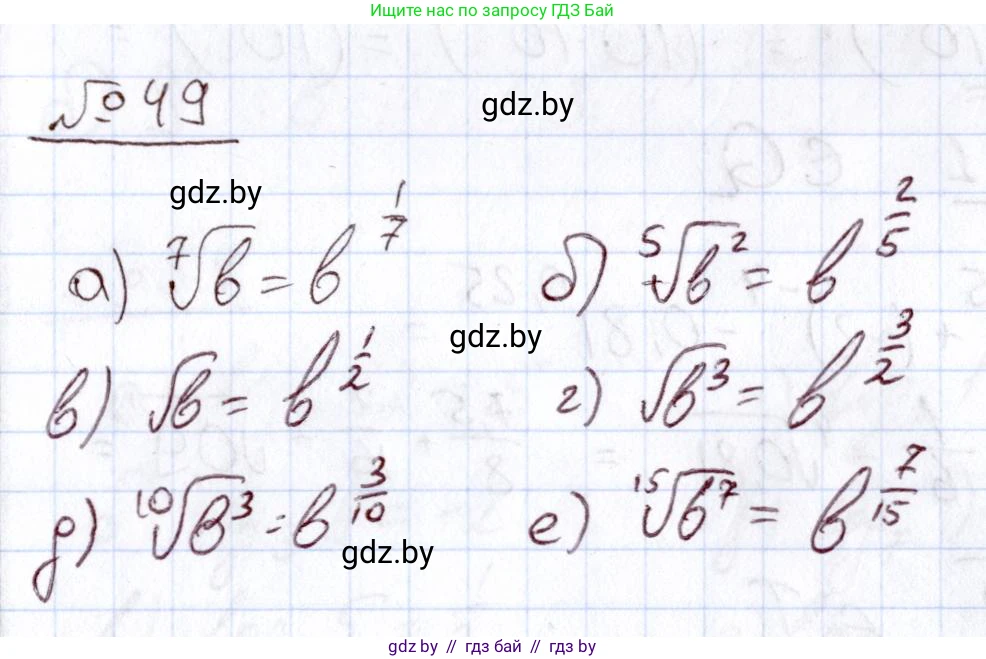 Ищите нас по запросу ГДЗ Бай
№ 49
gdz.by
gdz.by
а) ⁷√b = b^(1/7) б) ⁵√b² = b^(2/5)
gdz.by
в) √b = b^(1/2) г) √b³ = b^(3/2)
д) ¹⁰√b³ = b^(3/10) е) ¹⁵√b⁷ = b^(7/15)
gdz.by
gdz.by // гдз бай // gdz by